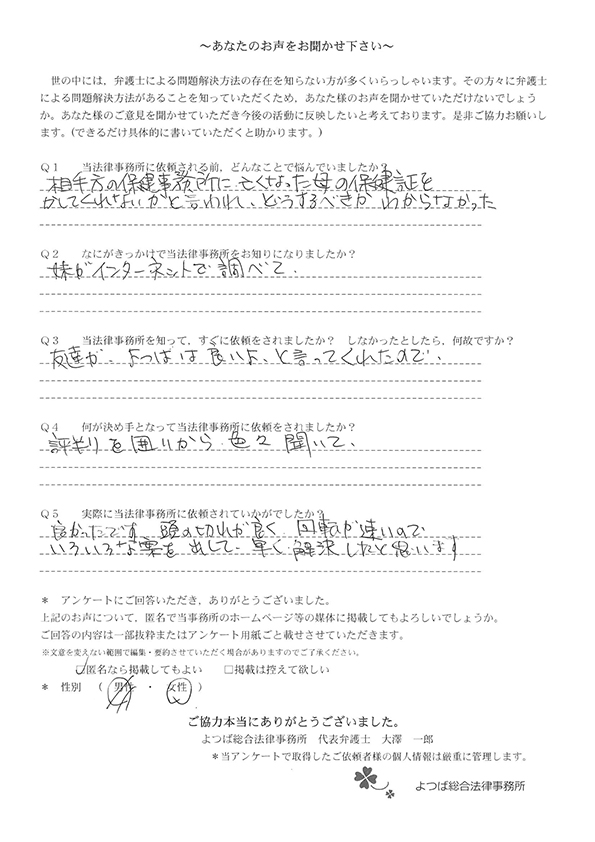 ～あなたのお声をお聞かせ下さい～
世の中には，弁護士による問題解決方法の存在を知らない方が多くいらっしゃいます。その方々に弁護士
による問題解決方法があることを知っていただくため，あなた様のお声を聞かせていただけないでしょう
か。あなた様のご意見を聞かせていただき今後の活動に反映したいと考えております。是非ご協力お願いし
ます。(できるだけ具体的に書いていただくと助かります。)
Ｑ１　当法律事務所に依頼される前，どんなことで悩んでいましたか？
相手方の保健事務所に亡くなった母の保健証を
かしてくれないかと言われ、どうするべきか わからなかった
Ｑ２　なにがきっかけで当法律事務所をお知りになりましたか？
妹がインターネットで調べて、
Ｑ３　当法律事務所を知って，すぐに依頼をされましたか？　しなかったとしたら，何故ですか？
友達が、よつばは良いよ、と言ってくれたので、
Ｑ４　何が決め手となって当法律事務所に依頼をされましたか？
評判を囲りから色々聞いて、
Ｑ５　実際に当法律事務所に依頼されていかがでしたか？
良かったです 頭の切れが良く 回転が速いので
いろいろな案を出して 早く解決したと思います
＊　アンケートにご回答いただき，ありがとうございました。
上記のお声について，匿名で当事務所のホームページ等の媒体に掲載してもよろしいでしょうか。
ご回答の内容は一部抜粋またはアンケート用紙ごと載せさせていただきます。
※文意を変えない範囲で編集・要約させていただく場合がありますのでご了承ください。
☑匿名なら掲載してもよい　□掲載は控えて欲しい
＊　性別　（　男性　・　女性　）
ご協力本当にありがとうございました。
よつば総合法律事務所　代表弁護士　大澤　一郎
＊当アンケートで取得したご依頼者様の個人情報は厳重に管理します。
よつば総合法律事務所